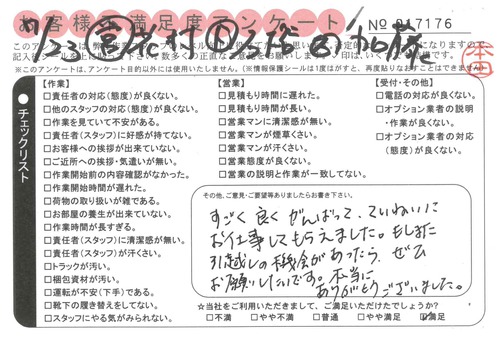 お客様満足度アンケート
No 217176
【作業】
□責任者の対応(態度)が良くない。
□他のスタッフの対応(態度)が良くない。
□作業を見ていて不安がある。
□責任者(スタッフ)に好感が持てない。
□お客様への挨拶が出来ていない。
□ご近所への挨拶・気遣いが無い。
□作業開始前の内容確認がなかった。
□作業開始時間が遅れた。
□荷物の取り扱いが雑である。
□お部屋の養生が出来ていない。
□作業時間が長すぎる。
□責任者(スタッフ)に清潔感が無い。
□責任者(スタッフ)が汗くさい。
□トラックが汚い。
□梱包資材が汚い。
□運転が不安(下手)である。
□靴下の履き替えをしてない。
□スタッフにやる気がみられない。
【営業】
□見積もり時間に遅れた。
□見積もり時間が長い。
□営業マンに清潔感が無い。
□営業マンが煙草くさい。
□営業マンが汗くさい。
□営業態度が良くない。
□営業の説明と作業が一致してない。
【受付・その他】
□電話の対応が良くない。
□オプション業者の説明
・作業が良くない。
□オプション業者の対応
(態度)が良くない。
チェックリスト
その他、ご意見・ご要望等ありましたらお書き下さい。
すごく良くがんばって、ていねいに
お仕事してもらえました。もしまた
引越しの機会があったら、ぜひ
お願いしたいです。本当に
ありがとうございました。
☆当社をご利用いただきまして、ご満足いただけたでしょうか?
□不満 □やや不満 □普通 □やや満足 満足